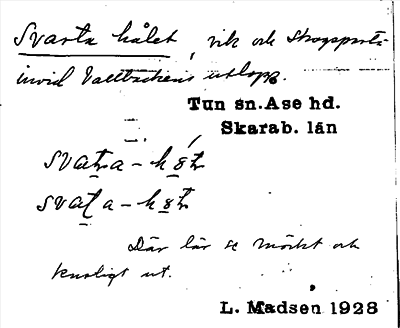 Svarta hålet, vik och skogsparti
invid Valltäckens utlopp.
Tun sn. Ase hd.
Skarab. län
svaţa - h
svaţa - h
Där lär se mörkt och
kusligt ut.
L. Madsen 1928